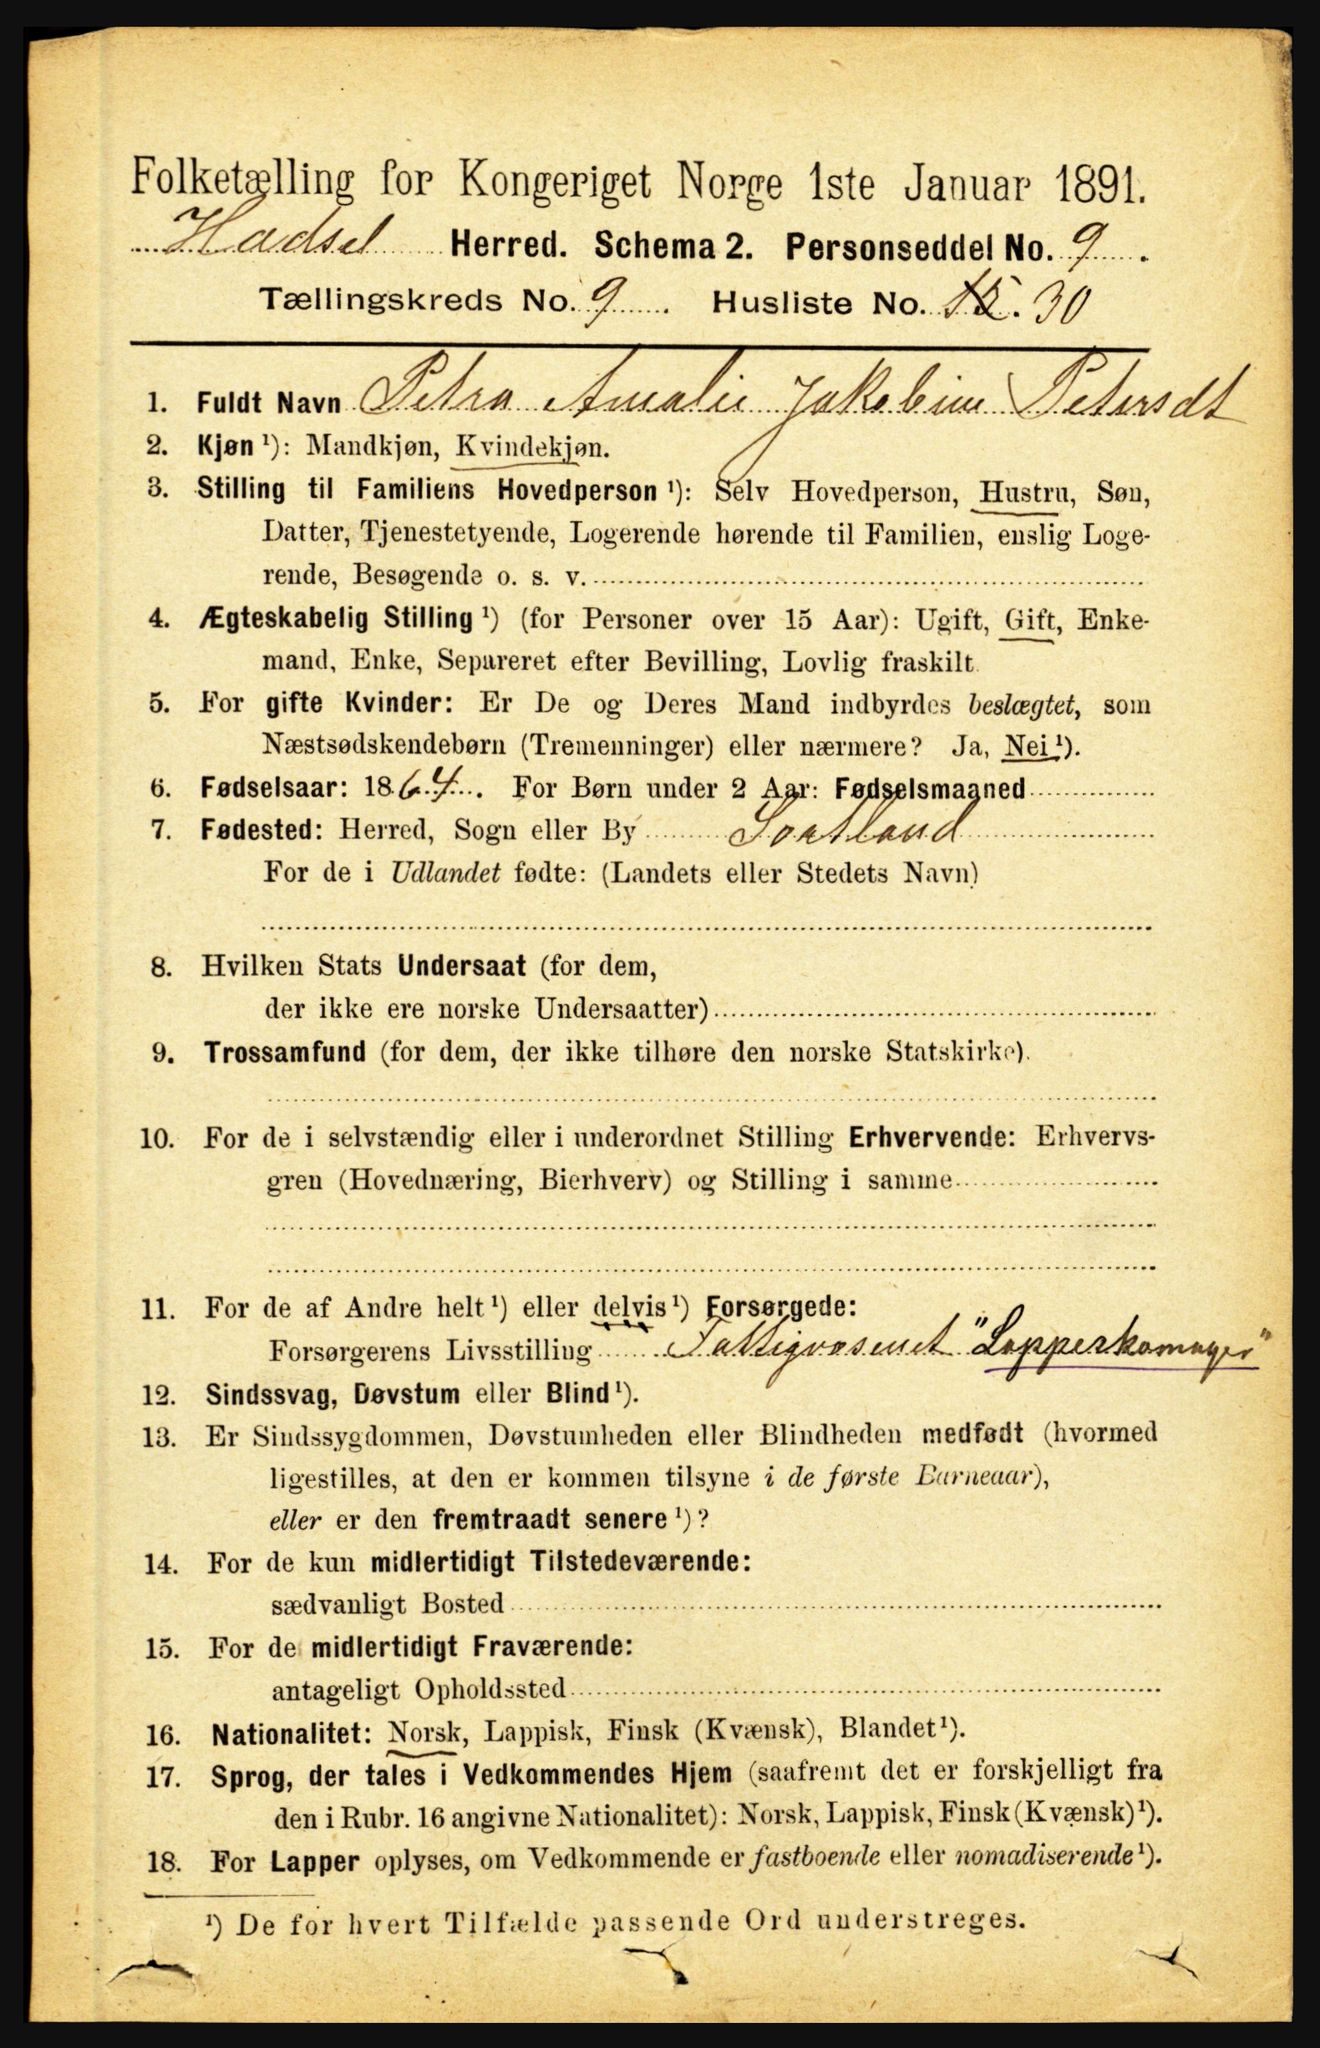 Folketælling for Kongeriget Norge 1ste Januar 1891.
Hadsel Herred. Schema 2. Personseddel No. 9.
Tællingskreds No. 9. Husliste No. 30
1. Fuldt Navn Petra Amalie Jakobine Petersdt
2. Kjøn ¹): Mandkjøn, Kvindekjøn.
3. Stilling til Familiens Hovedperson ¹): Selv Hovedperson, Hustru, Søn,
Datter, Tjenestetyende, Logerende hørende til Familien, enslig Loge-
rende, Besøgende o. s. v.
4. Ægteskabelig Stilling ¹) (for Personer over 15 Aar): Ugift, Gift, Enke-
mand, Enke, Separeret efter Bevilling, Lovlig fraskilt.
5. For gifte Kvinder: Er De og Deres Mand indbyrdes beslægtet, som
Næstsødskendebørn (Tremenninger) eller nærmere? Ja, Nei ¹).
6. Fødselsaar: 1864. For Børn under 2 Aar: Fødselsmaaned
7. Fødested: Herred, Sogn eller By Sortland
For de i Udlandet fødte: (Landets eller Stedets Navn)
8. Hvilken Stats Undersaat (for dem,
der ikke ere norske Undersaatter)
9. Trossamfund (for dem, der ikke tilhøre den norske Statskirke).
10. For de i selvstændig eller i underordnet Stilling Erhvervende: Erhvervs-
gren (Hovednæring, Bierhverv) og Stilling i samme
11. For de af Andre helt ¹) eller delvis ¹) Forsørgede:
Forsørgerens Livsstilling Fattigvæsenet "Lapperkomager"
12. Sindssvag, Døvstum eller Blind ¹).
13. Er Sindssygdommen, Døvstumheden eller Blindheden medfødt (hvormed
ligestilles, at den er kommen tilsyne i de første Barneaar),
eller er den fremtraadt senere ¹)?
14. For de kun midlertidigt Tilstedeværende:
sædvanligt Bosted
15. For de midlertidigt Fraværende:
antageligt Opholdssted
16. Nationalitet: Norsk, Lappisk, Finsk (Kvænsk), Blandet ¹).
17. Sprog, der tales i Vedkommendes Hjem (saafremt det er forskjelligt fra
den i Rubr. 16 angivne Nationalitet): Norsk, Lappisk, Finsk (Kvænsk) ¹).
18. For Lapper oplyses, om Vedkommende er fastboende eller nomadiserende ¹).
¹) De for hvert Tilfælde passende Ord understreges.